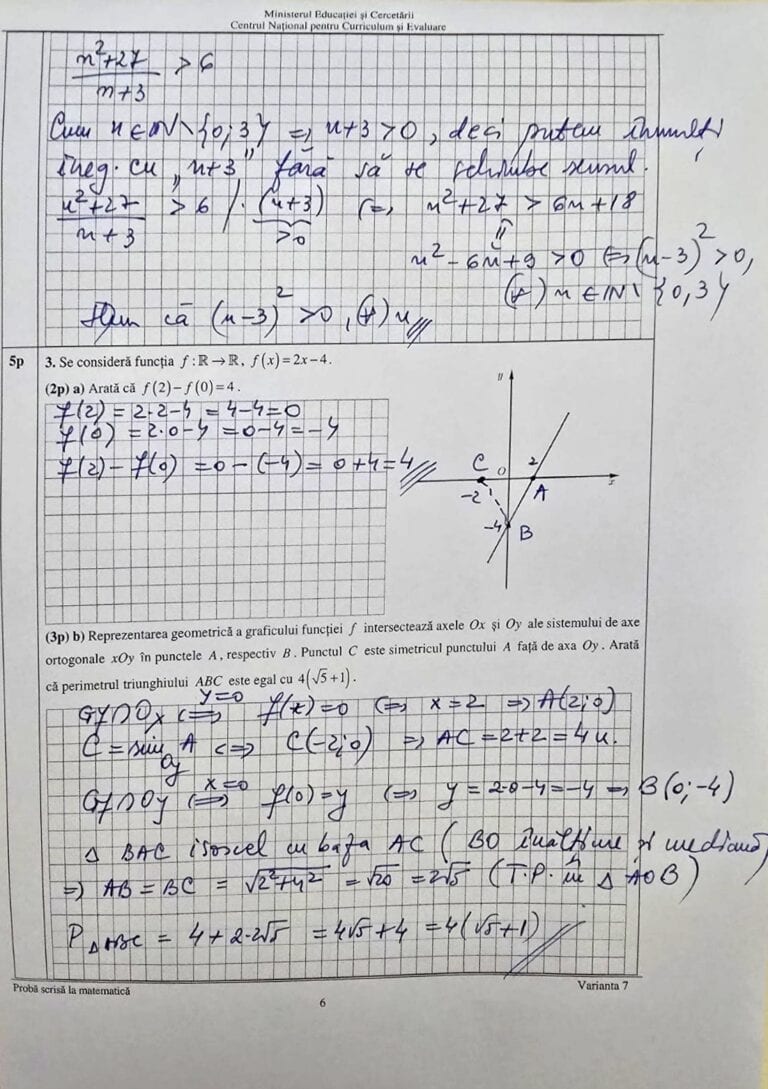 Ministerul Educației și Cercetării
Centrul Național pentru Curriculum și Evaluare
n²+27 / n+3 > 6
Cum n ∈ ℕ \ {0;3} ⇒ n+3 > 0, deci putem înmulți
ineg. cu „n+3” fără să se schimbe sensul.
n²+27 / n+3 > 6 / · (n+3) ⇔ n²+27 > 6n+18
>0
n² - 6n + 9 > 0 ⇔ (n-3)² > 0,
(∀) n ∈ ℕ \ {0,3}
că (n-3)² > 0, (∀) n
5p 3. Se consideră funcția f : ℝ → ℝ, f(x) = 2x − 4.
(2p) a) Arată că f(2) − f(0) = 4.
f(2) = 2·2-4 = 4-4 = 0
f(0) = 2·0-4 = 0-4 = -4
f(2) - f(0) = 0-(-4) = 0+4 = 4
y
C O 2
x
-2 A
-4 B
(3p) b) Reprezentarea geometrică a graficului funcției f intersectează axele Ox și Oy ale sistemului de axe
ortogonale xOy în punctele A, respectiv B. Punctul C este simetricul punctului A față de axa Oy. Arată
că perimetrul triunghiului ABC este egal cu 4(√5+1).
Gf∩Ox ⇔ y=0 f(x)=0 ⇔ x=2 ⇒ A(2;0)
C = sim Oy A ⇔ C(-2;0) ⇒ AC = 2+2 = 4 u.
Gf∩Oy ⇔ x=0 f(0)=y ⇔ y = 2·0-4 = -4 ⇒ B(0;-4)
Δ BAC isoscel cu baza AC (BO înălțime și mediană)
⇒ AB = BC = √2²+4² = √20 = 2√5 (T.P. în Δ AOB)
P Δ ABC = 4+2·2√5 = 4√5+4 = 4(√5+1)
Probă scrisă la matematică
Varianta 7
6